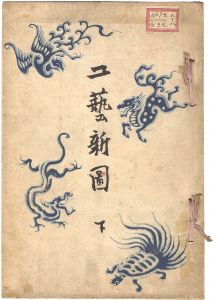 工藝新圖
下